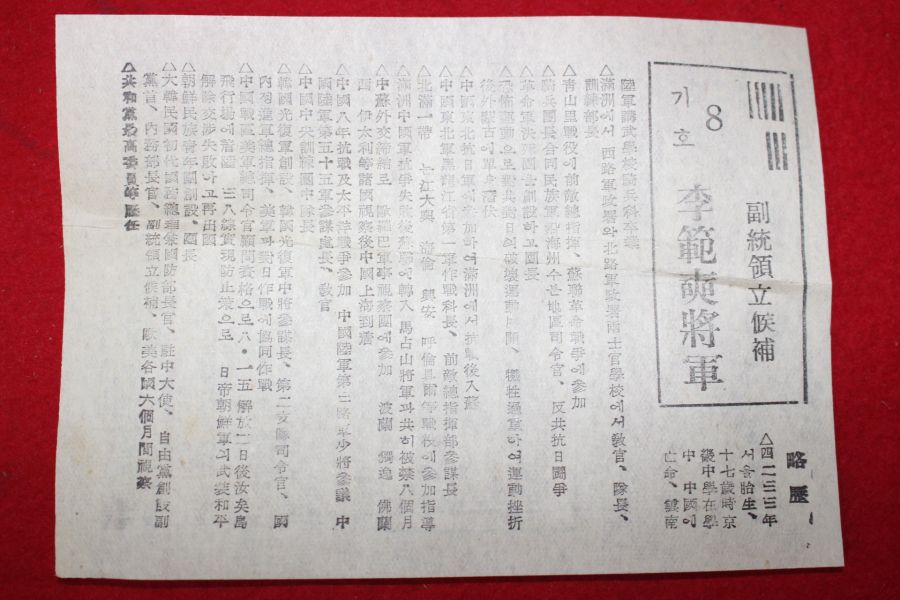 기호 8
副統領立候補
李範奭將軍
略歷
△四二三三年
서울胎生、
十七歲時京
畿中學在學
中、中國에
亡命、雲南
陸軍講武學校騎兵科卒業
△滿洲에서 西路軍政署와北路軍政署兩士官學校에서敎官、隊長、
訓練部長
△靑山里戰役에前敵總指揮、蘇聯革命戰爭에參加
△騎兵團長合同民族軍沿海州수분地區司令官、反共抗日鬪爭
△革命軍決死團을創設하고團長
△恐怖運動으로對共對日의破壞運動展開、犧牲過重하여運動挫折
後外蒙古에單身潛伏
△中國東北抗日軍에參加하여滿洲에서抗戰後入蘇
△中國東北軍黑龍江省第一軍作戰科長、前敵總指揮部參謀長
△北滿一帶 嫩江大興 海倫 興安 呼倫貝爾等戰役에參加指導
△滿洲中國軍抗爭失敗後蘇聯에轉入馬占山將軍과共히被禁八個月
△中蘇外交締結로 歐羅巴軍事視察團에參加 波蘭 獨逸 佛蘭
西 伊太利等諸國視察後中國上海到着
△中國八年抗戰及太平洋戰爭參加 中國陸軍第三路軍少將參議 中
國陸軍第五十五軍參謀處長、敎官
△中國中央訓練團中隊長
△韓國光復軍創設、韓國光復軍中將參謀長、第二支隊司令官、國
內挺進軍總指揮、美軍과對日作戰에協同作戰
△中國戰區美軍總司令官顧問資格으로八·一五 解放三日後汝矣島
飛行場에着陸 三八線實現防止策으로 日帝朝鮮軍의武裝和平
解除交涉失敗하고再出國
△朝鮮民族靑年團創設、團長
△大韓民國初代國務總理兼國防部長官、駐中大使、自由黨創設副
黨首、內務部長官、副統領立候補、歐美各國六個月間視察
△共和黨最高委員等歷任